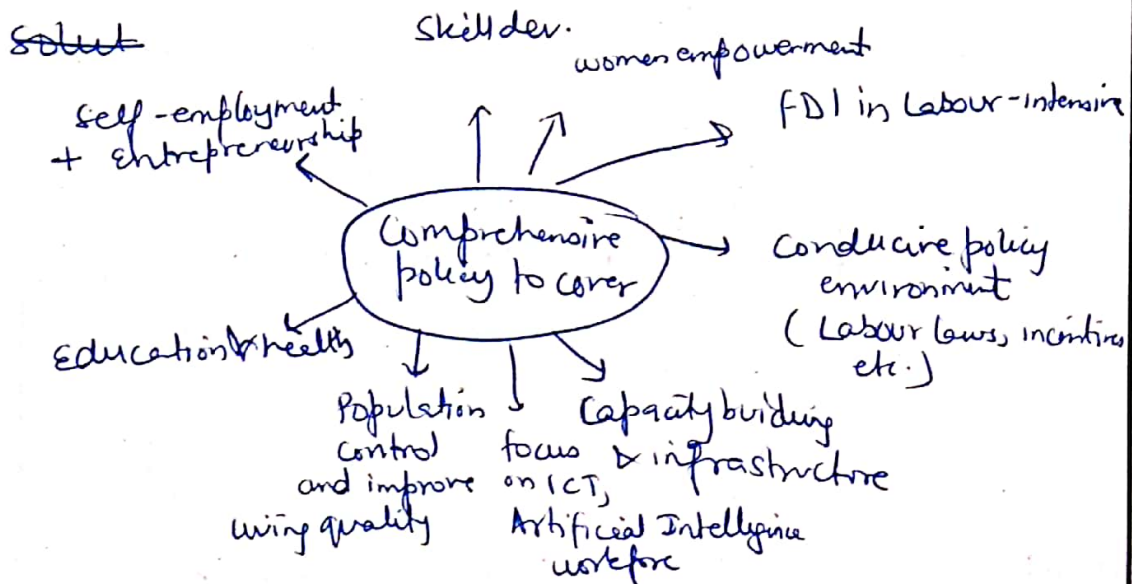 Solut
Skill dev.
women empowerment
FDI in Labour-intensive
Self-employment
+ Entrepreneurship
Comprehensive
policy to cover
Conducive policy
environment
(Labour laws, incentives
etc.)
Education & health
Population
control
and improve
living quality
focus
on ICT,
Artificial Intelligince
workfore
Capacity buiding
& infrastructure